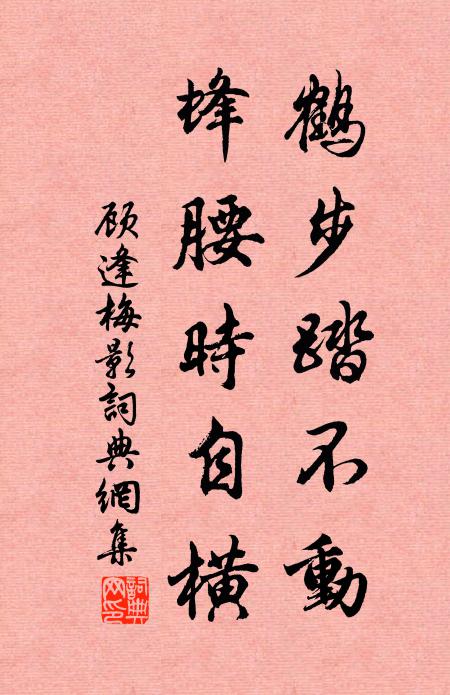 鶴步踏不動
蜂腰時自橫
顾逢梅影詞典網集
詞典網印